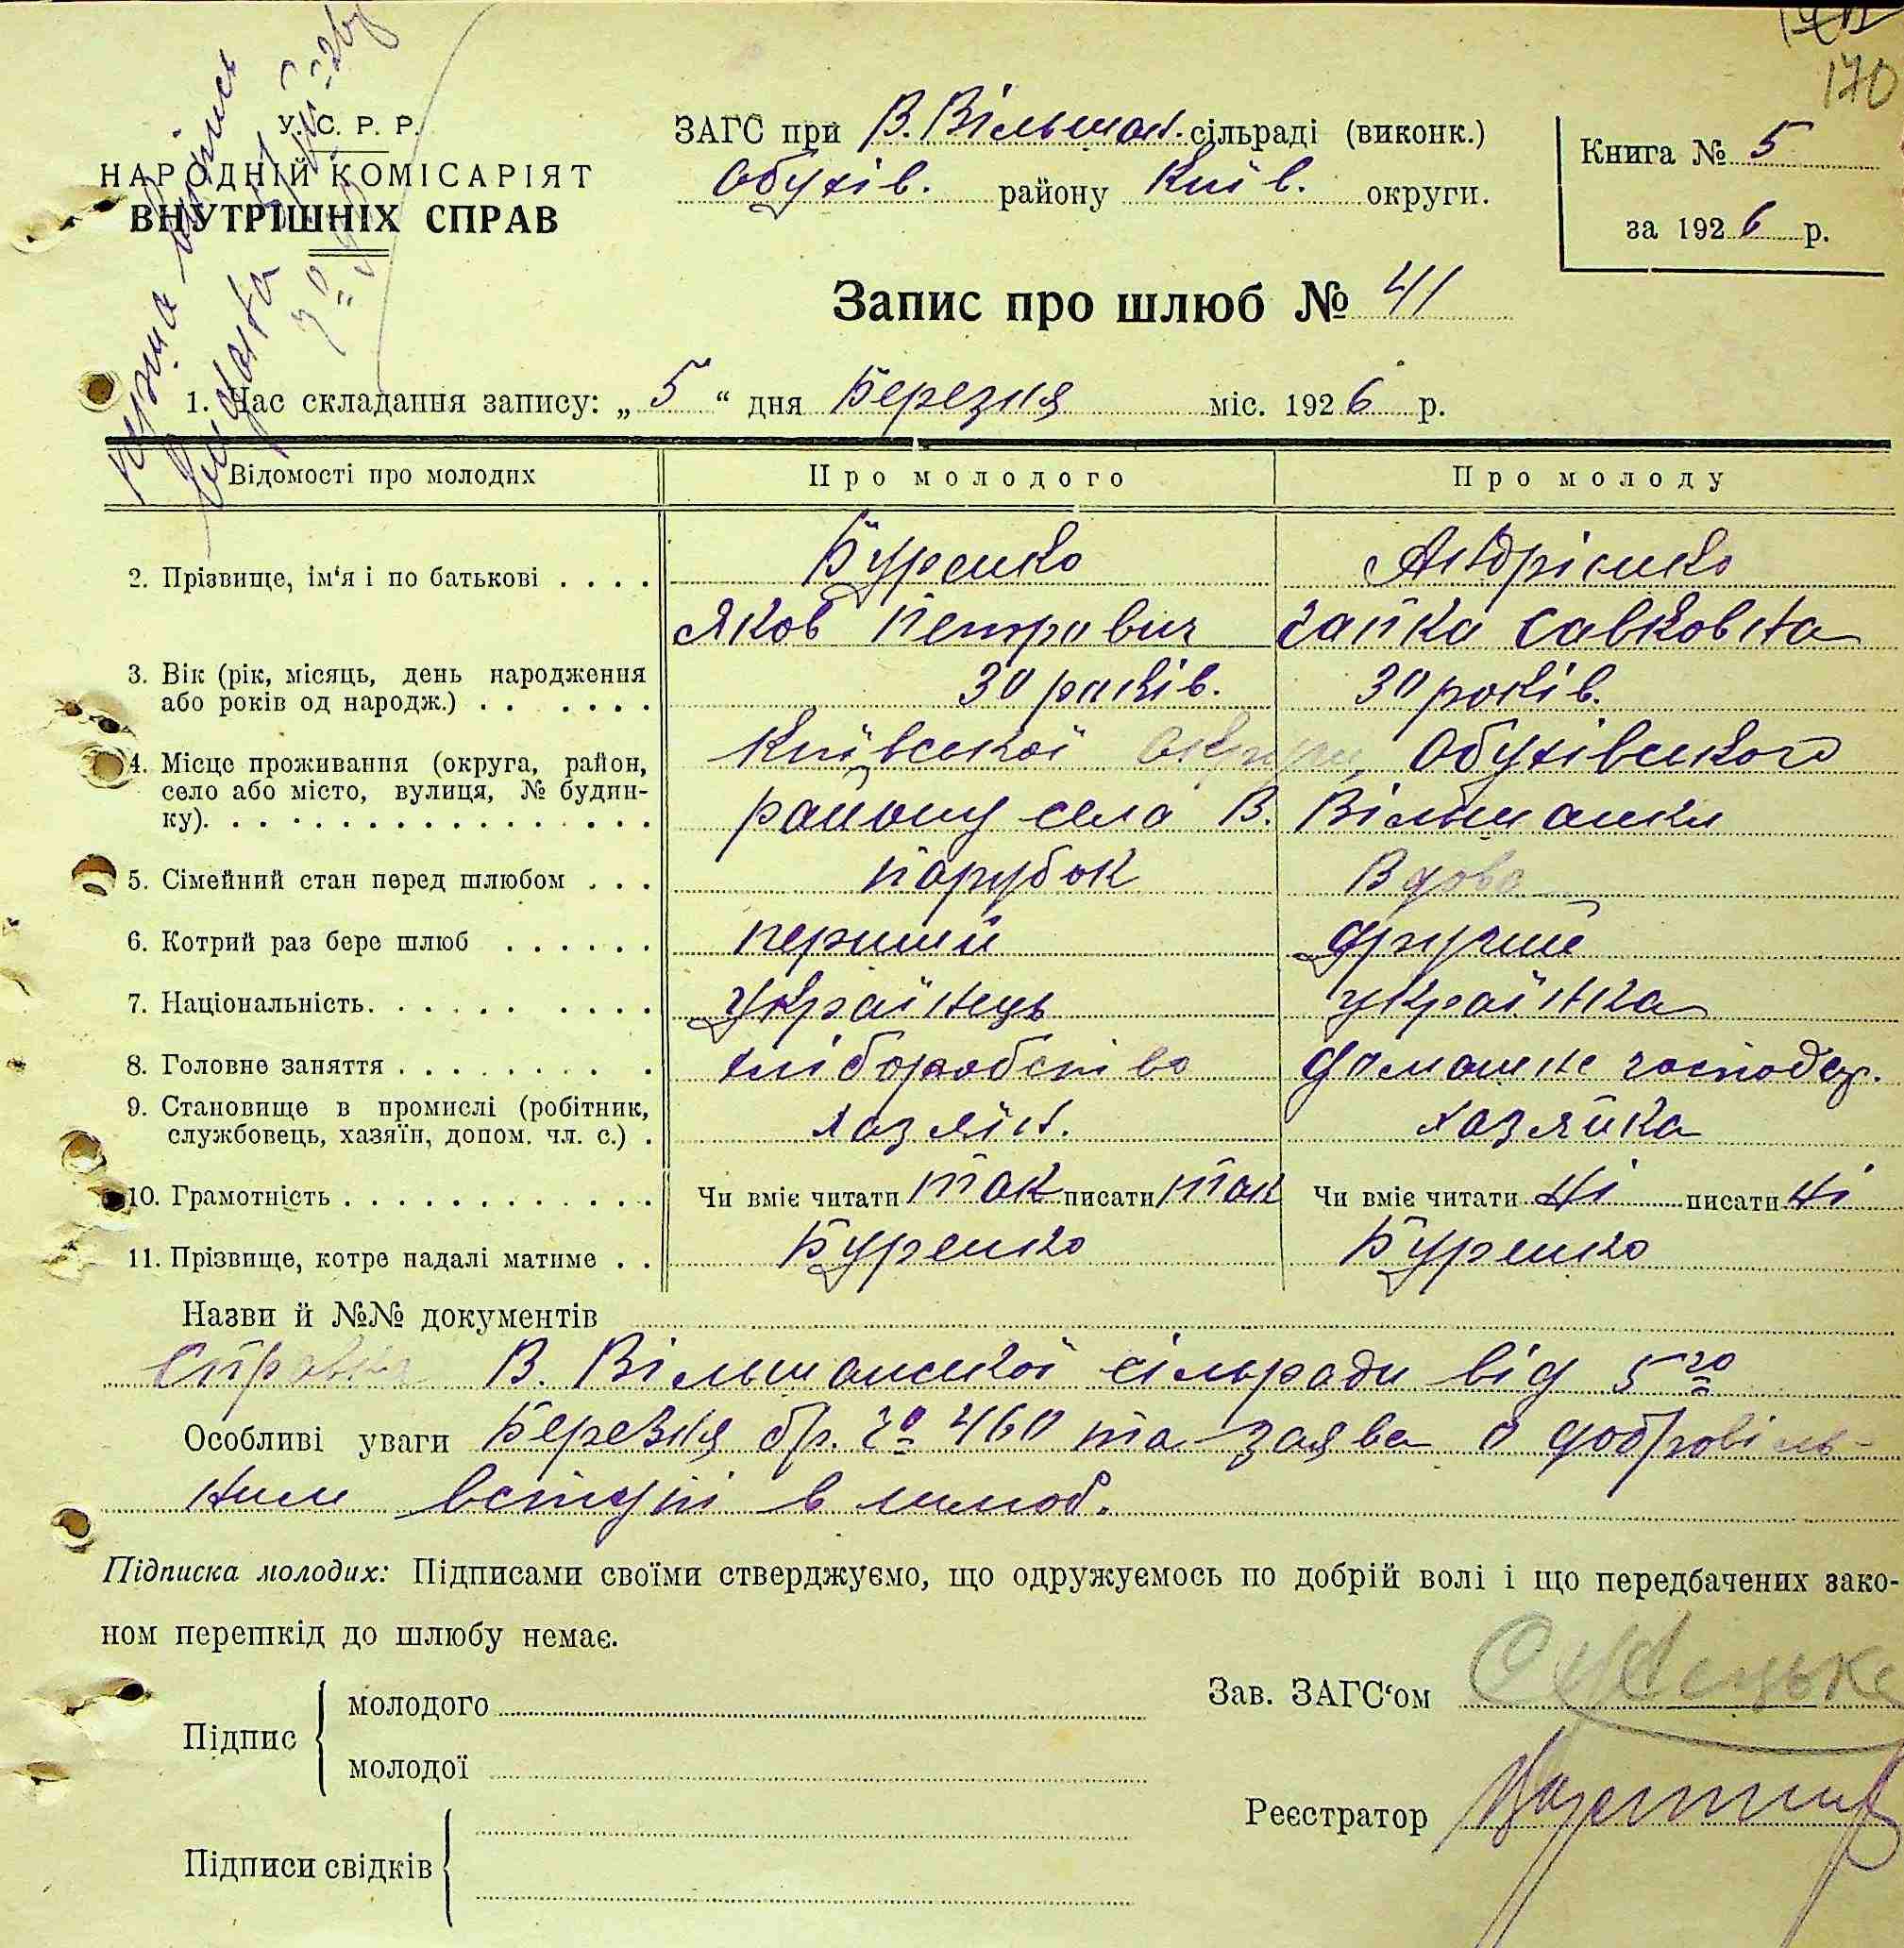 170
У. С. Р. Р.
НАРОДНІЙ КОМІСАРІЯТ
ВНУТРІШНІХ СПРАВ
ЗАГС при В. Вільшан. сільраді (виконк.)
Обухів. району Київ. округи.
Книга № 5
за 1926 р.
Запис про шлюб № 41
1. Час складання запису: „ 5 “ дня Березня міс. 1926 р.
Відомості про молодих Про молодого Про молоду
2. Прізвище, ім‘я і по батькові . . . . Буренко Андрієнко
Яков Петрович Гапка Савковна
3. Вік (рік, місяць, день народження 30 років. 30 років.
або років од народж.) . . . . . .
Київської Округи, Обухівського
4. Місце проживання (округа, район,
село або місто, вулиця, № будин- району села В. Вільшанки
ку). . . . . . . . . . . . . . . .
5. Сімейний стан перед шлюбом . . . парубок Вдова
6. Котрий раз бере шлюб . . . . . . перший другий
7. Національність. . . . . . . . . . українець українка
8. Головне заняття . . . . . . . . . хліборобство домашнє господар.
9. Становище в промислі (робітник, хазяїн. хазяйка
службовець, хазяїн, допом. чл. с.) .
10. Грамотність . . . . . . . . . . . . Чи вміє читати так писати так Чи вміє читати ні писати ні
11. Прізвище, котре надалі матиме . . Буренко Буренко
Назви й №№ документів
Справка В. Вільшанської сільради від 5го
Особливі уваги Березня б/р. № 460 та заява о добровіль-
ним вступі в шлюб.
Підписка молодих: Підписами своїми стверджуємо, що одружуємось по добрій волі і що передбачених зако-
ном перешкід до шлюбу немає.
Зав. ЗАГС‘ом
Підпис
молодого
молодої
Реєстратор
Підписи свідків